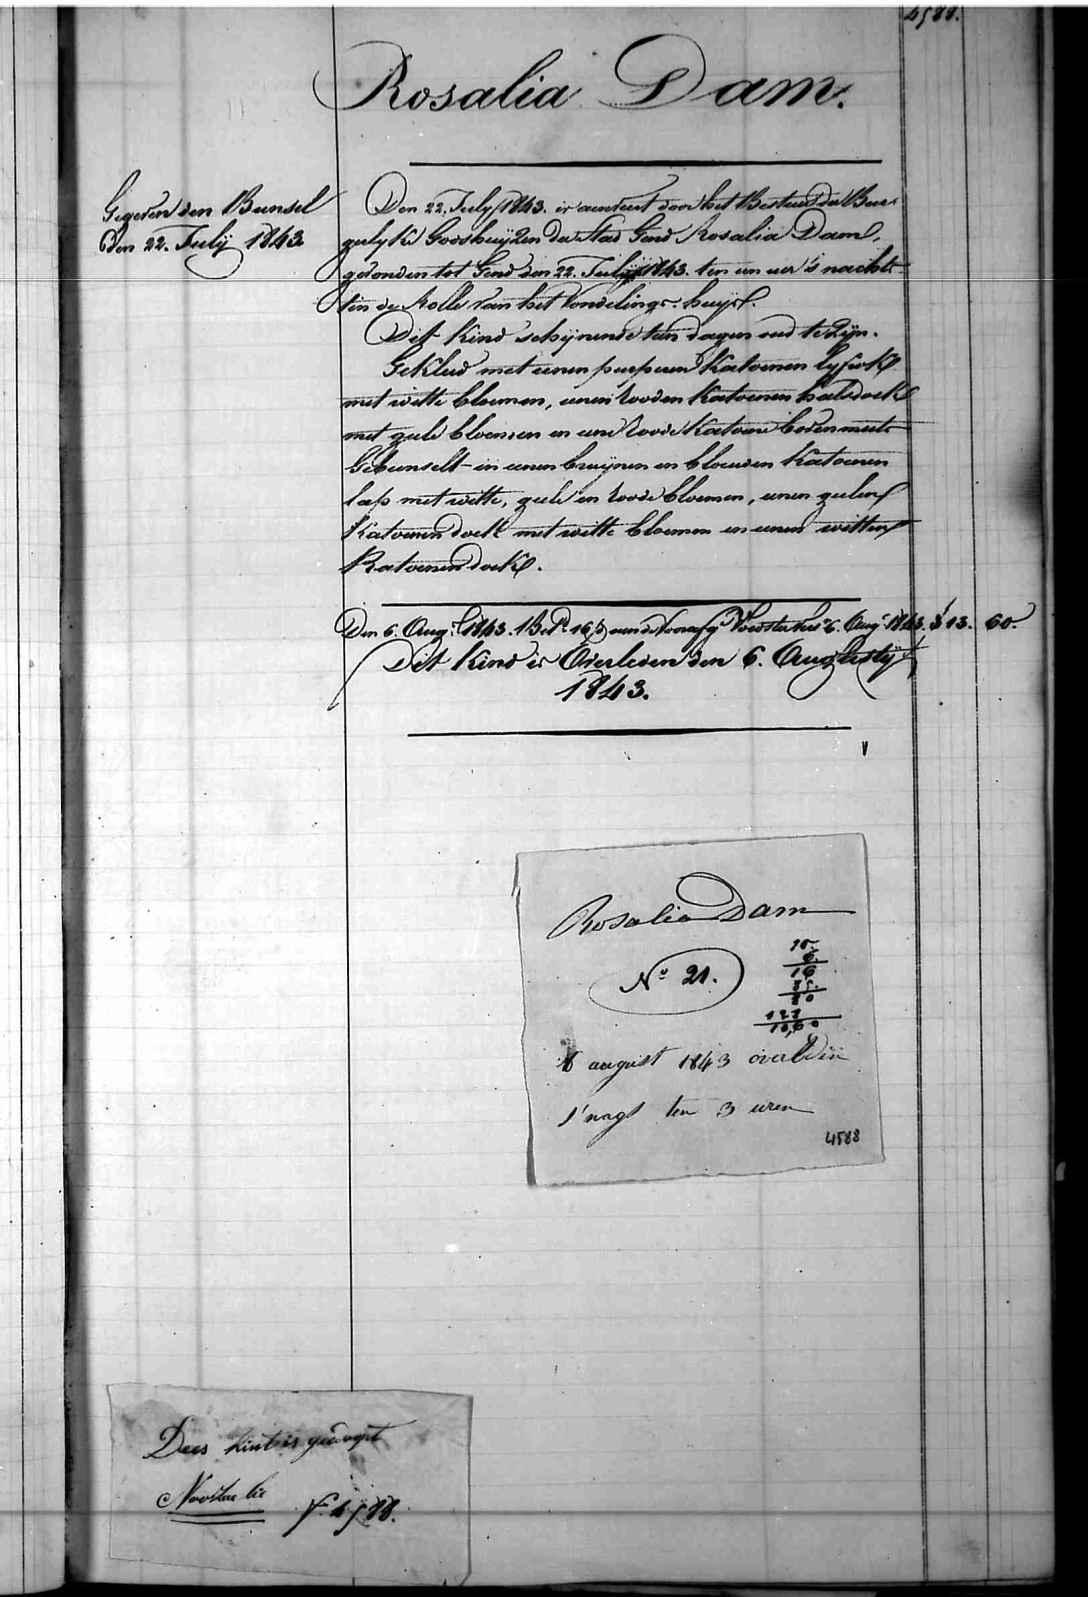 4588.
Rosalia Dam.
Gegeven den Bunsel
den 22. July 1843
Den 22. July 1843. is aenveert door het Bestuer der Bur-
gelyke Godshuyzen der Stad Gend Rosalia Dam,
gevonden tot Gend den 22. July 1843. ten een uer 's nachts
in de Rolle van het Vondelings-huys.
Dit Kind schynende tien dagen oud te zyn.
Gekleed met eenen purperen Katoenen lyfrok
met witte bloemen, eenen rooden Katoenen halsdoek
met geele bloemen en eene roode Katoene bovenmuts
Gebunselt in eenen bruynen en blauwen Katoenen
lap met witte, geele en roode bloemen, eenen geelen
Katoenen doek met witte bloemen en eenen witten
Katoenen doek.
Den 6. Aug. 1843. 6. Aug. 1843. 13. 60.
Dit Kind is Overleden den 6. Augusty
1843.
Rosalia Dam
No 21.
10.
6.
16
85.
80
128
13,60
6 august 1843 overledin
s'nags ten 3 uren
4588
Dees kint is gedoopt
f. 4588.